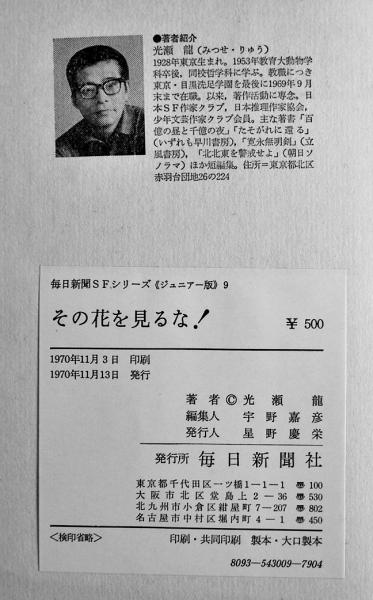 ●著者紹介
光瀬 龍(みつせ・りゅう)
1928年東京生まれ。1953年教育大動物学
科卒後,同校哲学科に学ぶ。教職につき
東京・目黒洗足学園を最後に1969年9月
末まで在職。以来,著作活動に専念。日
本SF作家クラブ,日本推理作家協会,
少年文芸作家クラブ会員。主な著書「百
億の昼と千億の夜」「たそがれに還る」
(いずれも早川書房),「寛永無明剣」(立
風書房),「北北東を警戒せよ」(朝日ソ
ノラマ)ほか短編集。住所=東京都北区
赤羽台団地26の224
毎日新聞SFシリーズ《ジュニアー版》9
その花を見るな!
¥500
1970年11月3日 印刷
1970年11月13日 発行
著者 © 光瀬 龍
編集人 宇野嘉彦
発行人 星野慶栄
発行所 毎日新聞社
東京都千代田区一ツ橋1-1-1 〒100
大阪市北区堂島上2-36 〒530
北九州市小倉区紺屋町7-207 〒802
名古屋市中村区堀内町4-1 〒450
<検印省略>
印刷・共同印刷 製本・大口製本
8093-543009-7904